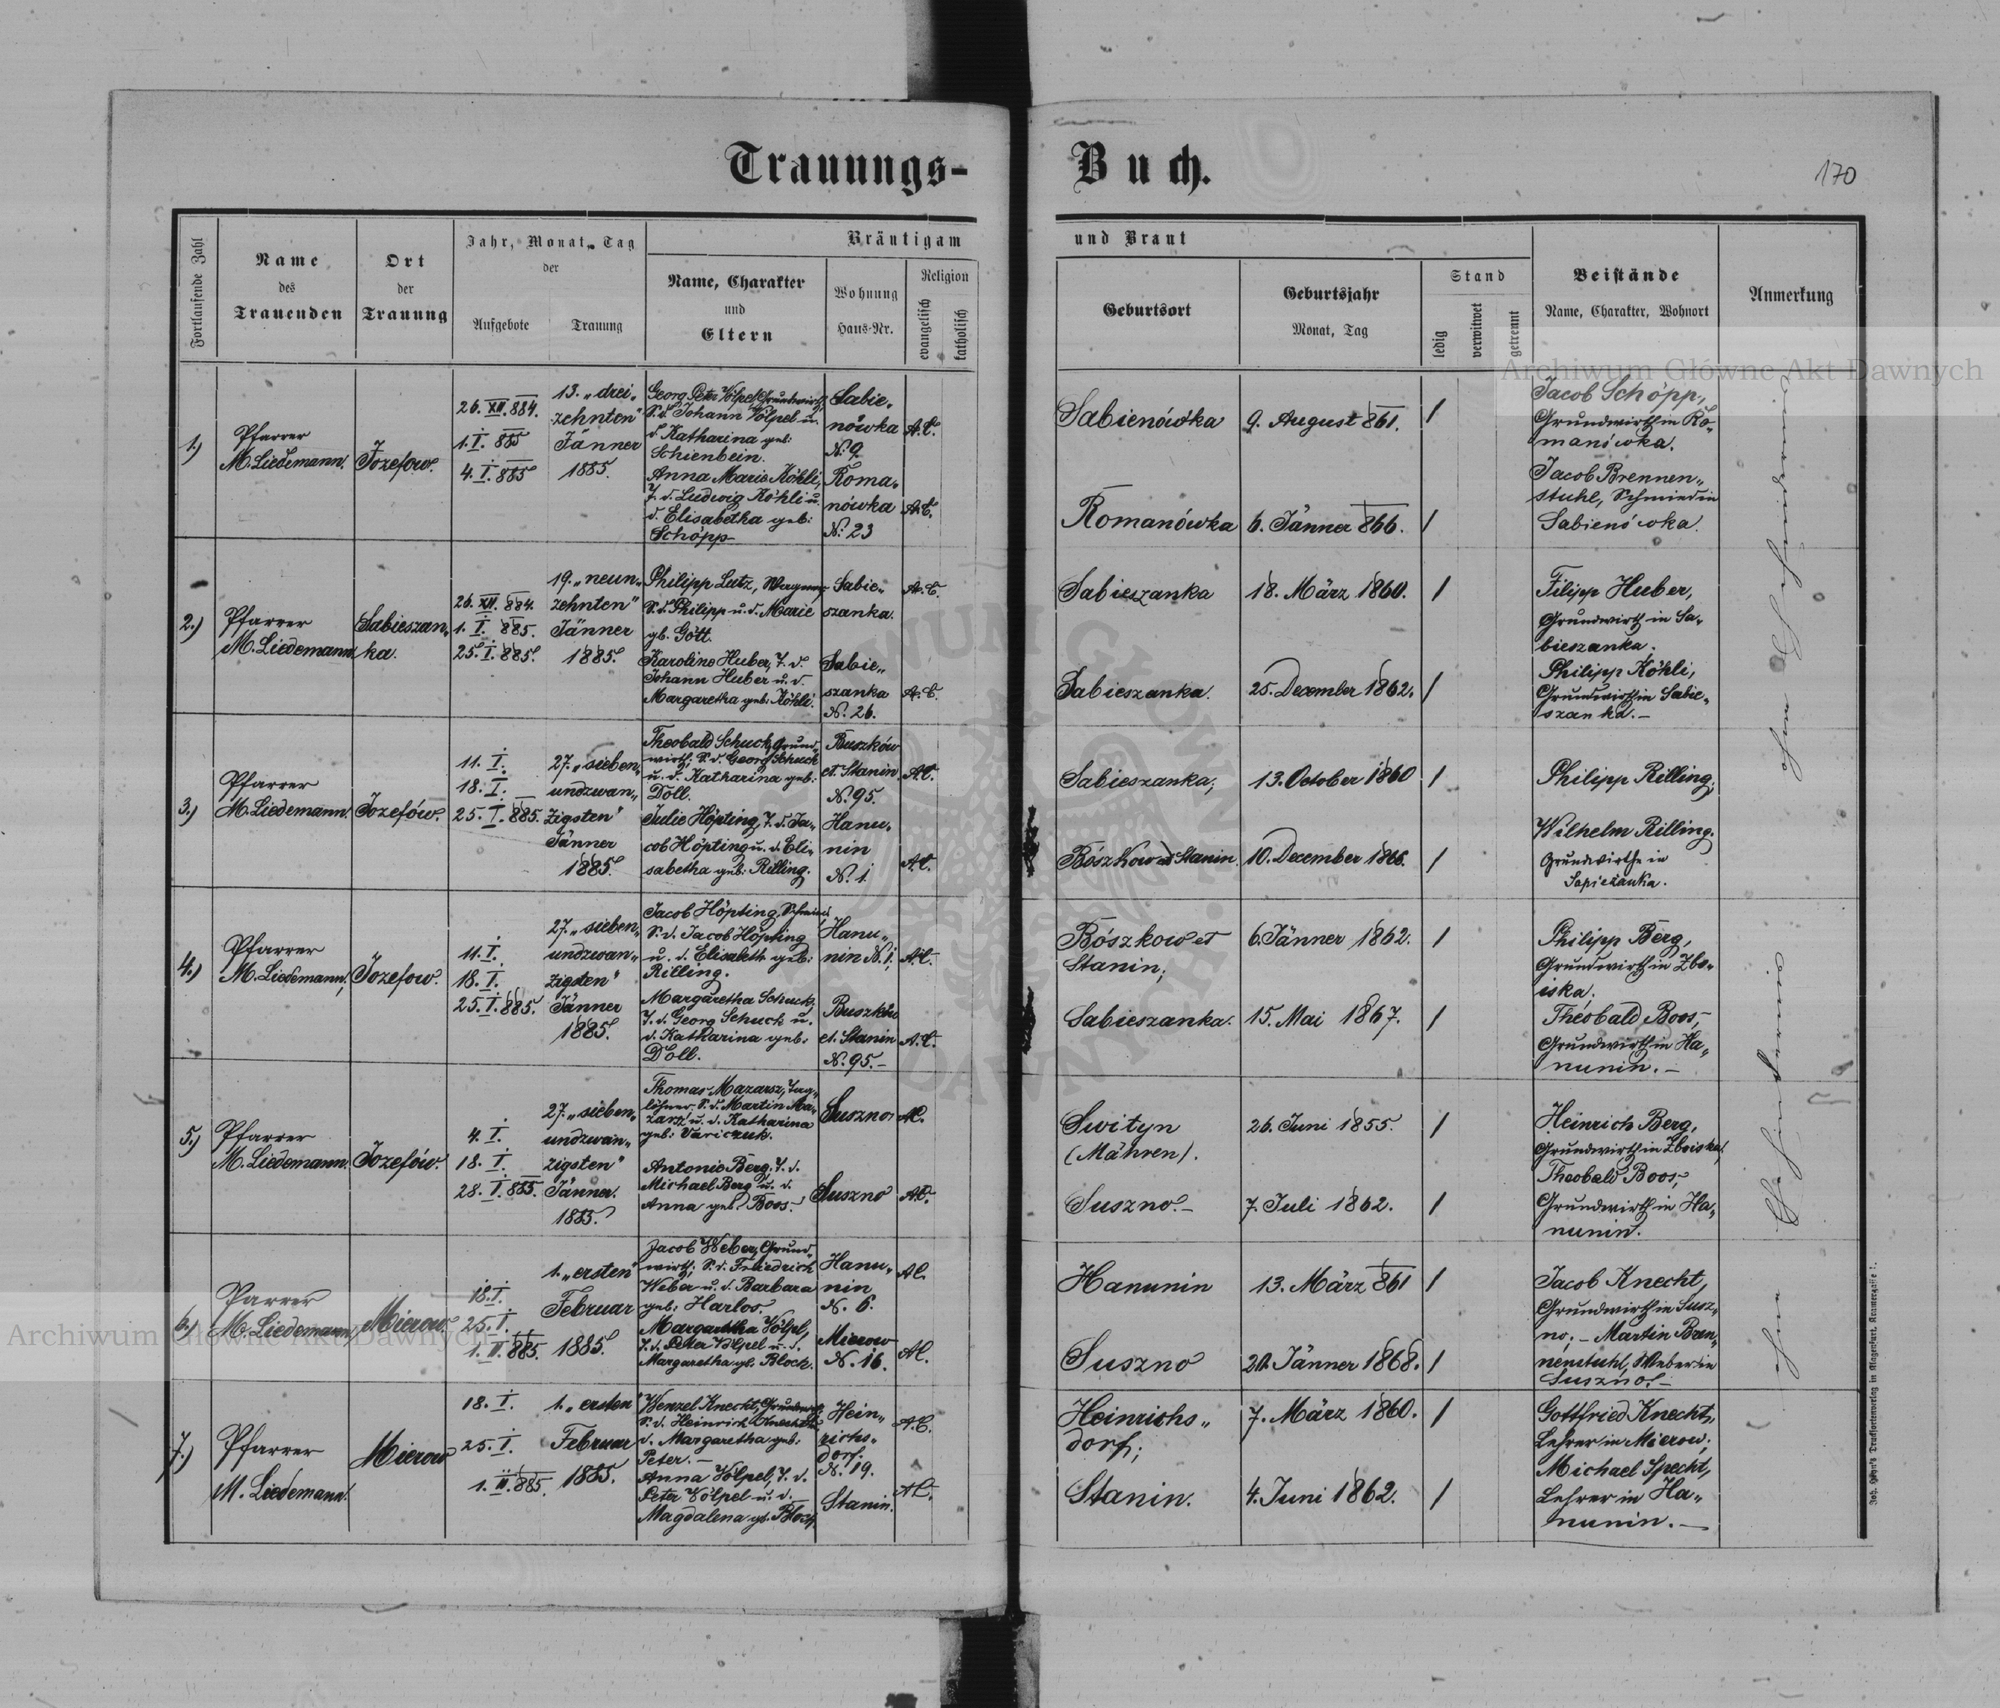 Trauungs-
Buch.
170
Fortlaufende Zahl
Name
des
Trauenden
Ort
der
Trauung
Jahr, Monat, Tag
der
Aufgebote
Trauung
Bräutigam
Name, Charakter
und
Eltern
Wohnung
Haus-Nr.
Religion
evangelisch
katholisch
und Braut
Geburtsort
Geburtsjahr
Monat, Tag
Stand
ledig
verwitwet
getrennt
Beistände
Name, Charakter, Wohnort
Anmerkung
1.)
Pfarrer
M. Liedemann.
Jozefow.
26. XII. 884.
1. I. 885
4. I. 885
13. „drei„
zehnten"
Jänner
1885.
Georg Peter Völpel, Grundwirth,
S. d. Johann Völpel u.
d. Katharina geb:
Schienbein.
Sabie„
nówka
N: 9
A.C.
Anna Marie Köhli,
T. d. Ludwig Köhli u.
d. Elisabetha geb:
Schöpp
Roma„
nówka
N: 23
A.C.
Sabienówka
9. August 861.
Romanówka
6. Jänner 866.
Jacob Schöpp,
Grundwirth in Ro„
manówka.
Jacob Brennen„
stuhl, Schmied in
Sabienówka.
2.)
Pfarrer
M. Liedemann.
Sabieszan„
ka.
26. XII. 884.
1. I. 885.
25. I. 885.
19. „neun„
zehnten"
Jänner
1885.
Philipp Lutz, Wagner,
S. d. Philipp u. d. Marie
gb. Gött.
Sabie„
szanka.
A.C.
Karoline Huber, T. d.
Johann Huber u. d.
Margaretha geb: Köhli.
Sabie„
szanka
N. 26.
A.C.
Sabieszanka
18. März 1860.
Sabieszanka.
25. December 1862.
Filipp Huber,
Grundwirth in Sa„
bieszanka.
Philipp Köhli,
Grundwirth in Sabie„
szanka.—
3.)
Pfarrer
M. Liedemann.
Jozefów.
11. I.
18. I.
25. I. 885.
27. „sieben„
undzwan„
zigsten"
Jänner
1885.
Theobald Schuck, Grund„
wirth; S. d. Georg Schuck
u. d. Katharina geb:
Döll.
Buszków
et. Stanin
N. 95.
A.C.
Julie Höpting, T. d. Ja„
cob Höpting u. d. Eli„
sabetha geb: Rilling.
Hanu„
nin
N. 1.
A.C.
Sabieszanka;
13. October 1860
Bószkow et Stanin.
10. December 1866.
Philipp Rilling;
Wilhelm Rilling.
Grundwirthe in
Sapieżanka.
4.)
Pfarrer
M. Liedemann;
Jozefow.
11. I.
18. I.
25. I. 885.
27. „sieben„
undzwan„
zigsten"
Jänner
1885.
Jacob Höpting, Schmied,
S. d. Jacob Höpting
u. d. Elisabeth geb:
Rilling.
Hanu„
nin N. 1;
A.C.
Margaretha Schuck.
T. d. Georg Schuck u.
d. Katharina geb:
Döll.
Buszków
et. Stanin
N. 95.—
A.C.
Bószkow et
Stanin;
6. Jänner 1862.
Sabieszanka.
15. Mai 1867.
Philipp Berg,
Grundwirth in Zbo„
iska.
Theobald Boos,
Grundwirth in Ha„
nunin.—
5.)
Pfarrer
M. Liedemann.
Jozefów.
4. I.
18. I.
28. I. 885.
27. „sieben„
undzwan„
zigsten"
Jänner.
1885.
Thomas Mazarsz, Tag„
löhner, S. d. Martin Ma„
zarsz u. d. Katharina
geb: Variczuk.
Suszno
A.C.
Antonie Berg, T. d.
Michael Berg u. d.
Anna geb. Boos.
Suszno
A.C.
Switym
(Mähren).
26. Juni 1855.
Suszno.—
7. Juli 1862.
Heinrich Berg,
Grundwirth in Zboiska,
Theobald Boos,
Grundwirth in Ha„
nunin.
6.)
Parrer
M. Liedemann,
Mierow.
18. I.
25. I.
1. II. 885.
1. „ersten"
Februar
1885.
Jacob Weber, Grund„
wirth; S. d. Friedrich
Weber u. d. Barbara
geb: Harlos.
Hanu„
nin
N. 6.
A.C.
Margaretha Völpl,
T. d. Peter Völpel u. d.
Margaretha gb. Block.
Mierow
N. 16.
A.C.
Hanunin
13. März 861
Suszno
Jänner 1868.
Jacob Knecht,
Grundwirth in Susz„
no;— Martin Bren„
nenstuhl, Weber in
Suszno.—
7.)
Pfarrer
M. Liedemann.
Mierow
18. I.
25. I.
1. II. 885.
1. „ersten
Februar
1885.
Wenzel Knecht, Grundwirth,
S. d. Heinrich Knecht u.
d. Margaretha geb:
Peter.—
Hein„
richs„
dorf
N. 19.
A.C.
Anna Völpel, T. d.
Peter Völpel u. d.
Magdalena gb. Block.
Stanin.
A.C.
Heinrichs„
dorf;
7. März 1860.
Stanin.
4. Juni 1862.
Gottfried Knecht,
Lehrer in Mierow;
Michael Specht,
Lehrer in Ha„
nunin.—
Archiwum Główne Akt Dawnych
Archiwum Główne Akt Dawnych